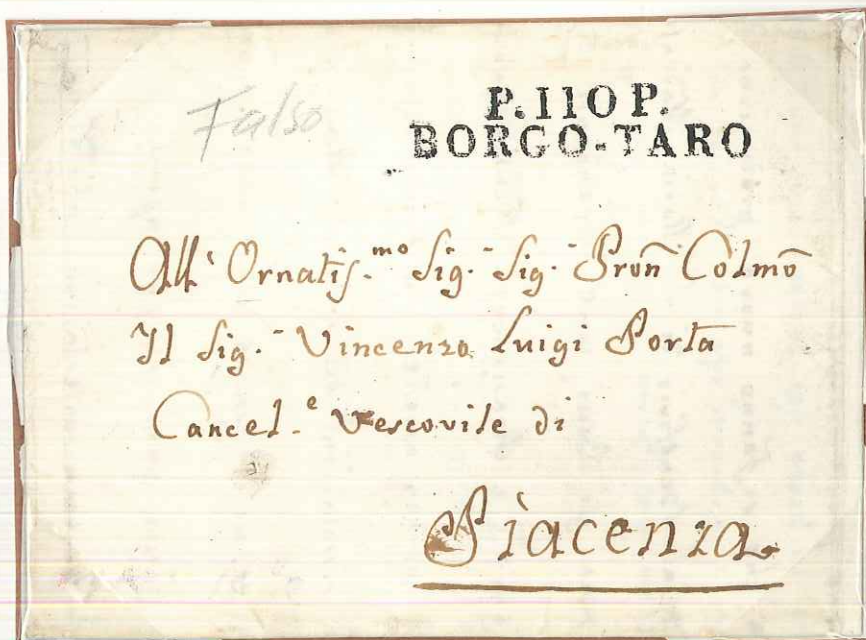 Falso
P. 110 P.
BORGO-TARO
All' Ornatis.mo Sig. Sig. Pron Colmo
Il Sig. Vincenzo Luigi Porta
Cancel.e Vescovile di
Piacenza